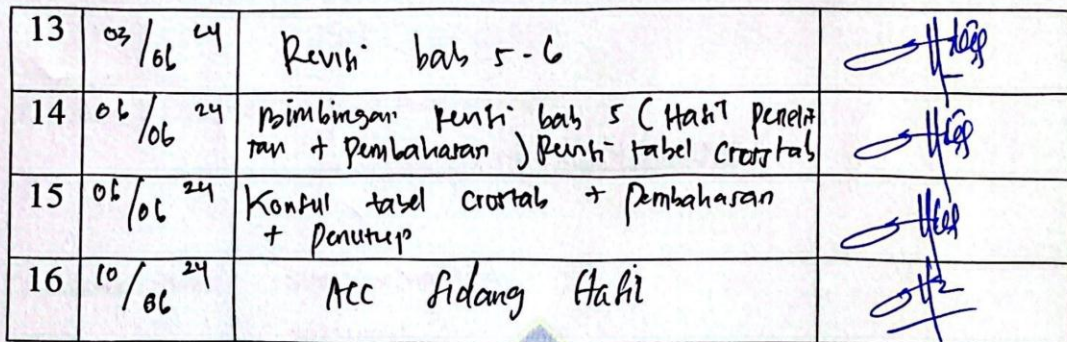 13 03/06 24 Revisi bab 5-6
14 06/06 24 Bimbingan Revisi bab 5 (Hasil peneli
tian + Pembahasan) Revisi tabel crosstab
15 06/06 24 Konsul tabel crosstab + Pembahasan
+ Penutup
16 10/06 24 Acc Sidang Hasil